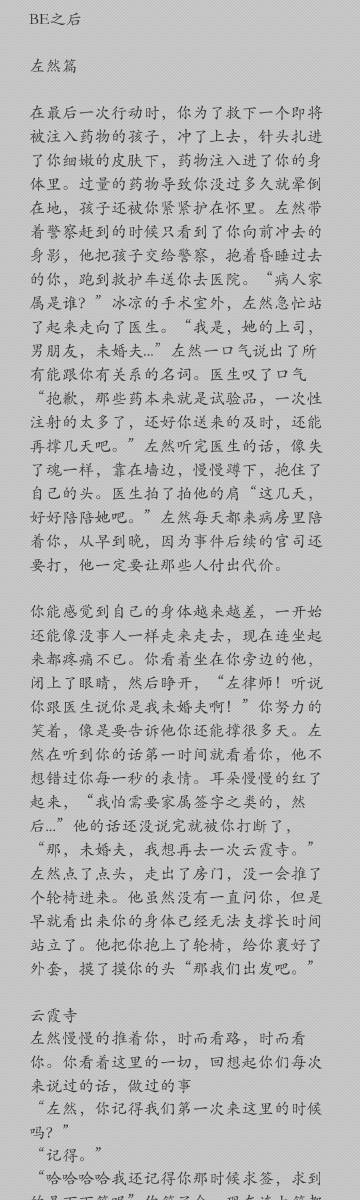 BE之后
左然篇
在最后一次行动时，你为了救下一个即将
被注入药物的孩子，冲了上去，针头扎进
了你细嫩的皮肤下，药物注入进了你的身
体里。过量的药物导致你没过多久就晕倒
在地，孩子还被你紧紧护在怀里。左然带
着警察赶到的时候只看到了你向前冲去的
身影，他把孩子交给警察，抱着昏睡过去
的你，跑到救护车送你去医院。“病人家
属是谁？”冰凉的手术室外，左然急忙站
了起来走向了医生。“我是，她的上司，
男朋友，未婚夫…”左然一口气说出了所
有能跟你有关系的名词。医生叹了口气
“抱歉，那些药本来就是试验品，一次性
注射的太多了，还好你送来的及时，还能
再撑几天吧。”左然听完医生的话，像失
了魂一样，靠在墙边，慢慢蹲下，抱住了
自己的头。医生拍了拍他的肩“这几天，
好好陪陪她吧。”左然每天都来病房里陪
着你，从早到晚，因为事件后续的官司还
要打，他一定要让那些人付出代价。
你能感觉到自己的身体越来越差，一开始
还能像没事人一样走来走去，现在连坐起
来都疼痛不已。你看着坐在你旁边的他，
闭上了眼睛，然后睁开，“左律师！听说
你跟医生说你是我未婚夫啊！”你努力的
笑着，像是要告诉他你还能撑很多天。左
然在听到你的话第一时间就看着你，他不
想错过你每一秒的表情。耳朵慢慢的红了
起来，“我怕需要家属签字之类的，然
后…”他的话还没说完就被你打断了，
“那，未婚夫，我想再去一次云霞寺。”
左然点了点头，走出了房门，没一会推了
个轮椅进来。他虽然没有一直问你，但是
早就看出来你的身体已经无法支撑长时间
站立了。他把你抱上了轮椅，给你裹好了
外套，摸了摸你的头“那我们出发吧。”
云霞寺
左然慢慢的推着你，时而看路，时而看
你。你看着这里的一切，回想起你们每次
来说过的话，做过的事
“左然，你记得我们第一次来这里的时候
吗？”
“记得。”
“哈哈哈哈我还记得你那时候求签，求到